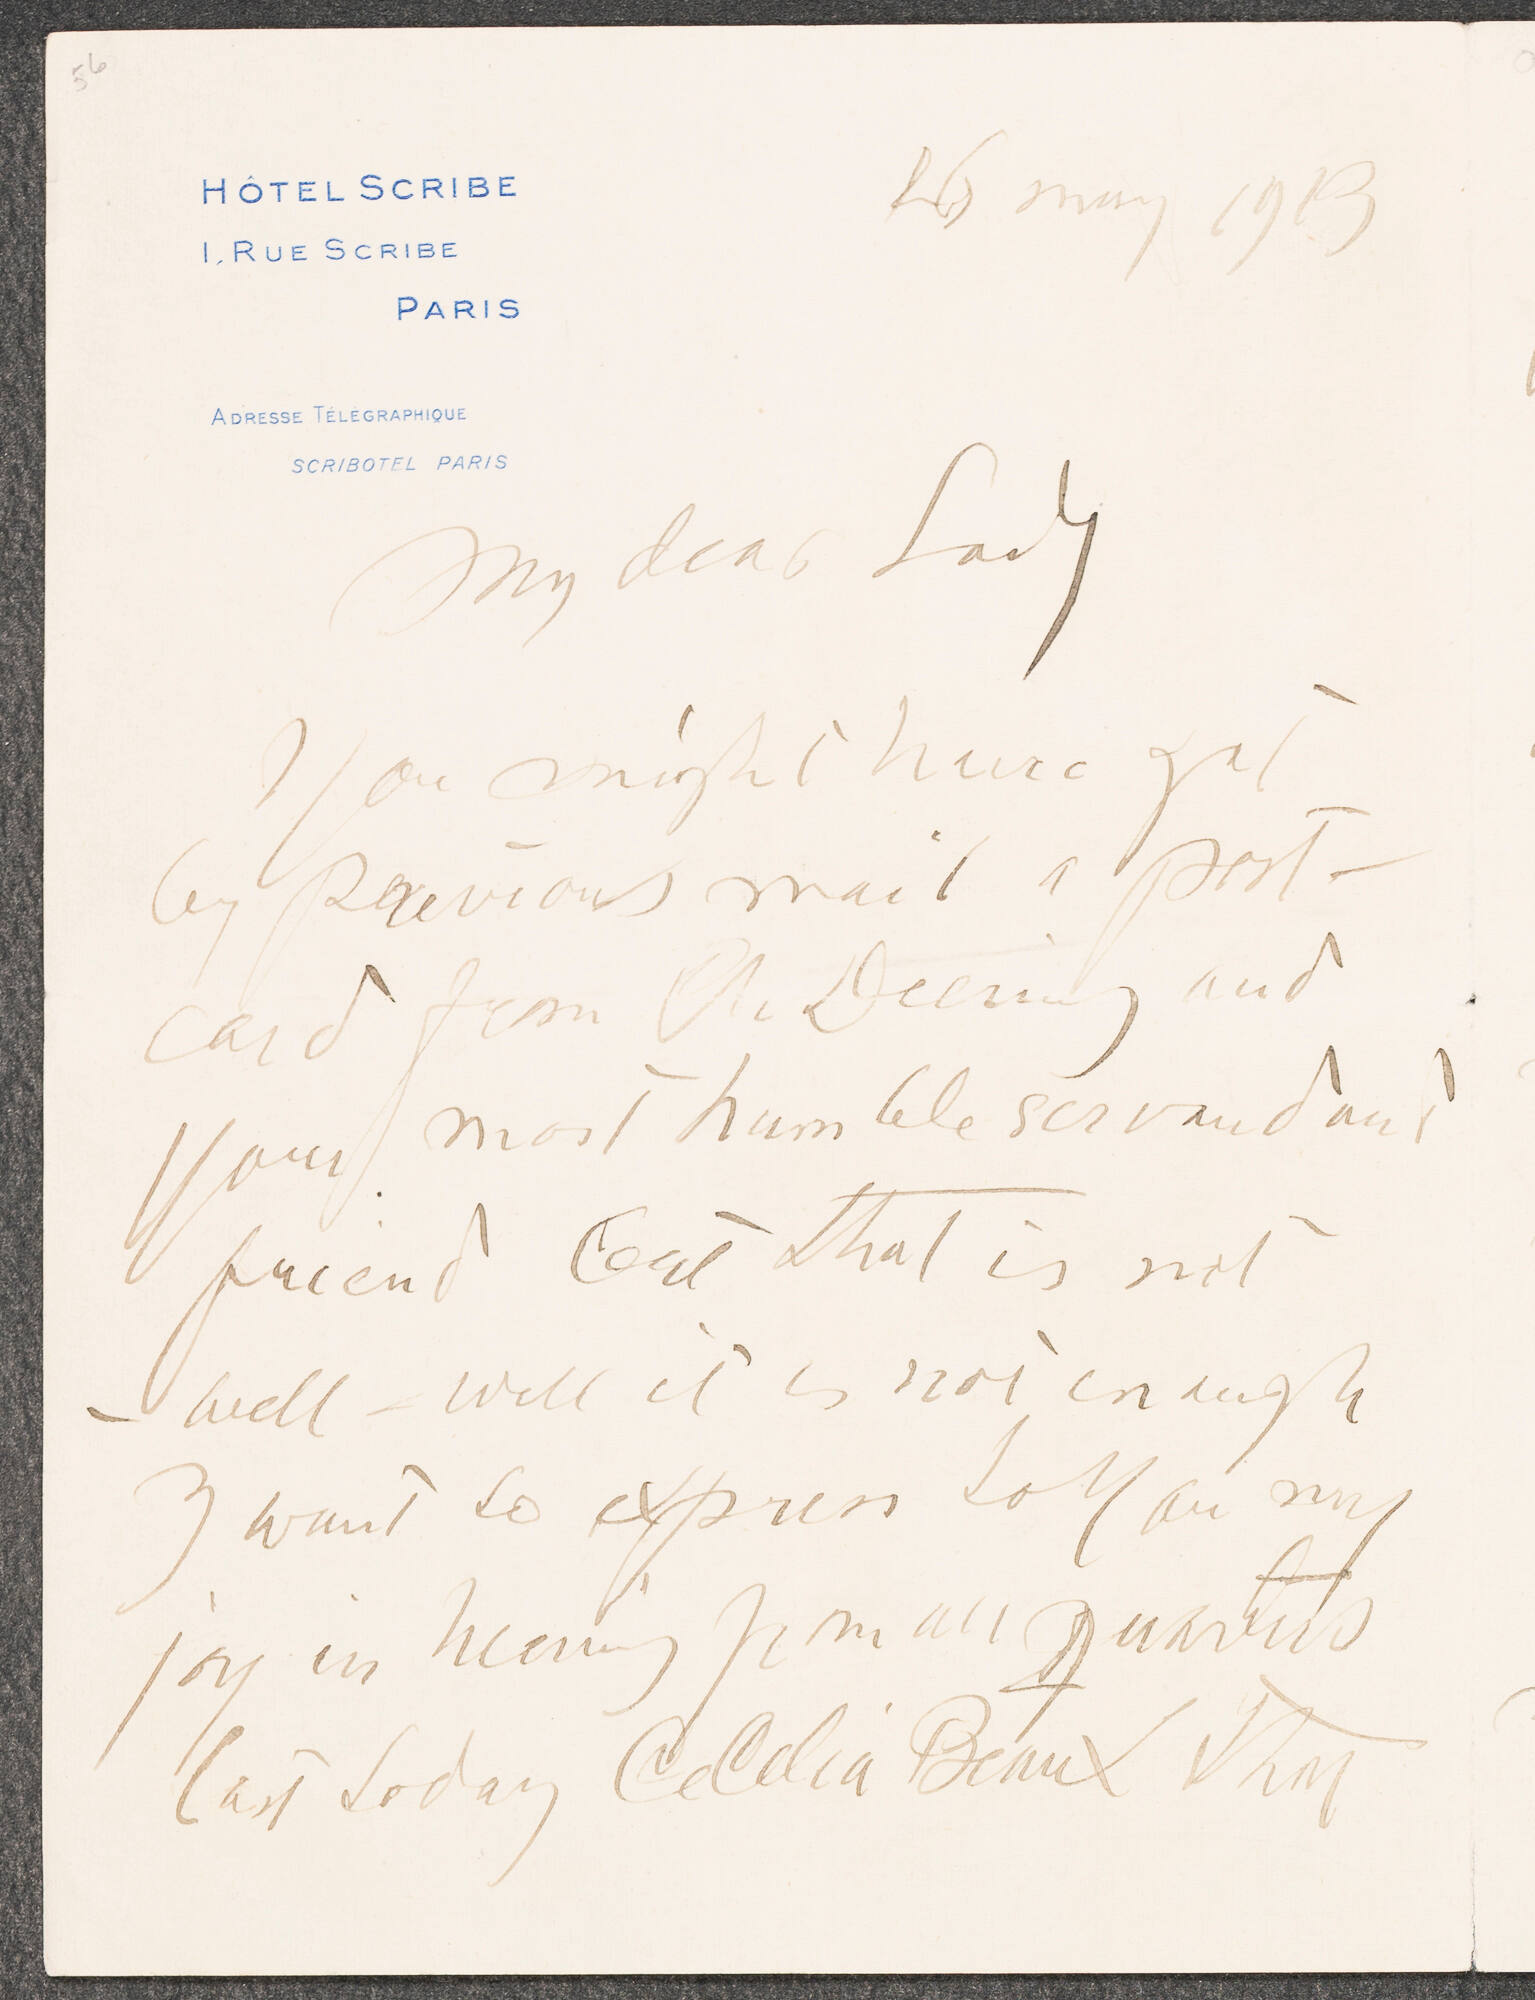 56
HÔTEL SCRIBE
1, RUE SCRIBE
PARIS
ADRESSE TÉLÉGRAPHIQUE
SCRIBOTEL PARIS
16 may 1913
My dear Lady
You might have got
by previous mail a post-
card from Ch Deering and
your most humble servand and
friend but that is not
- well - well it is not enough
I want to express to You my
joy in hearing from all quarters
last today Cecilia Beaux that